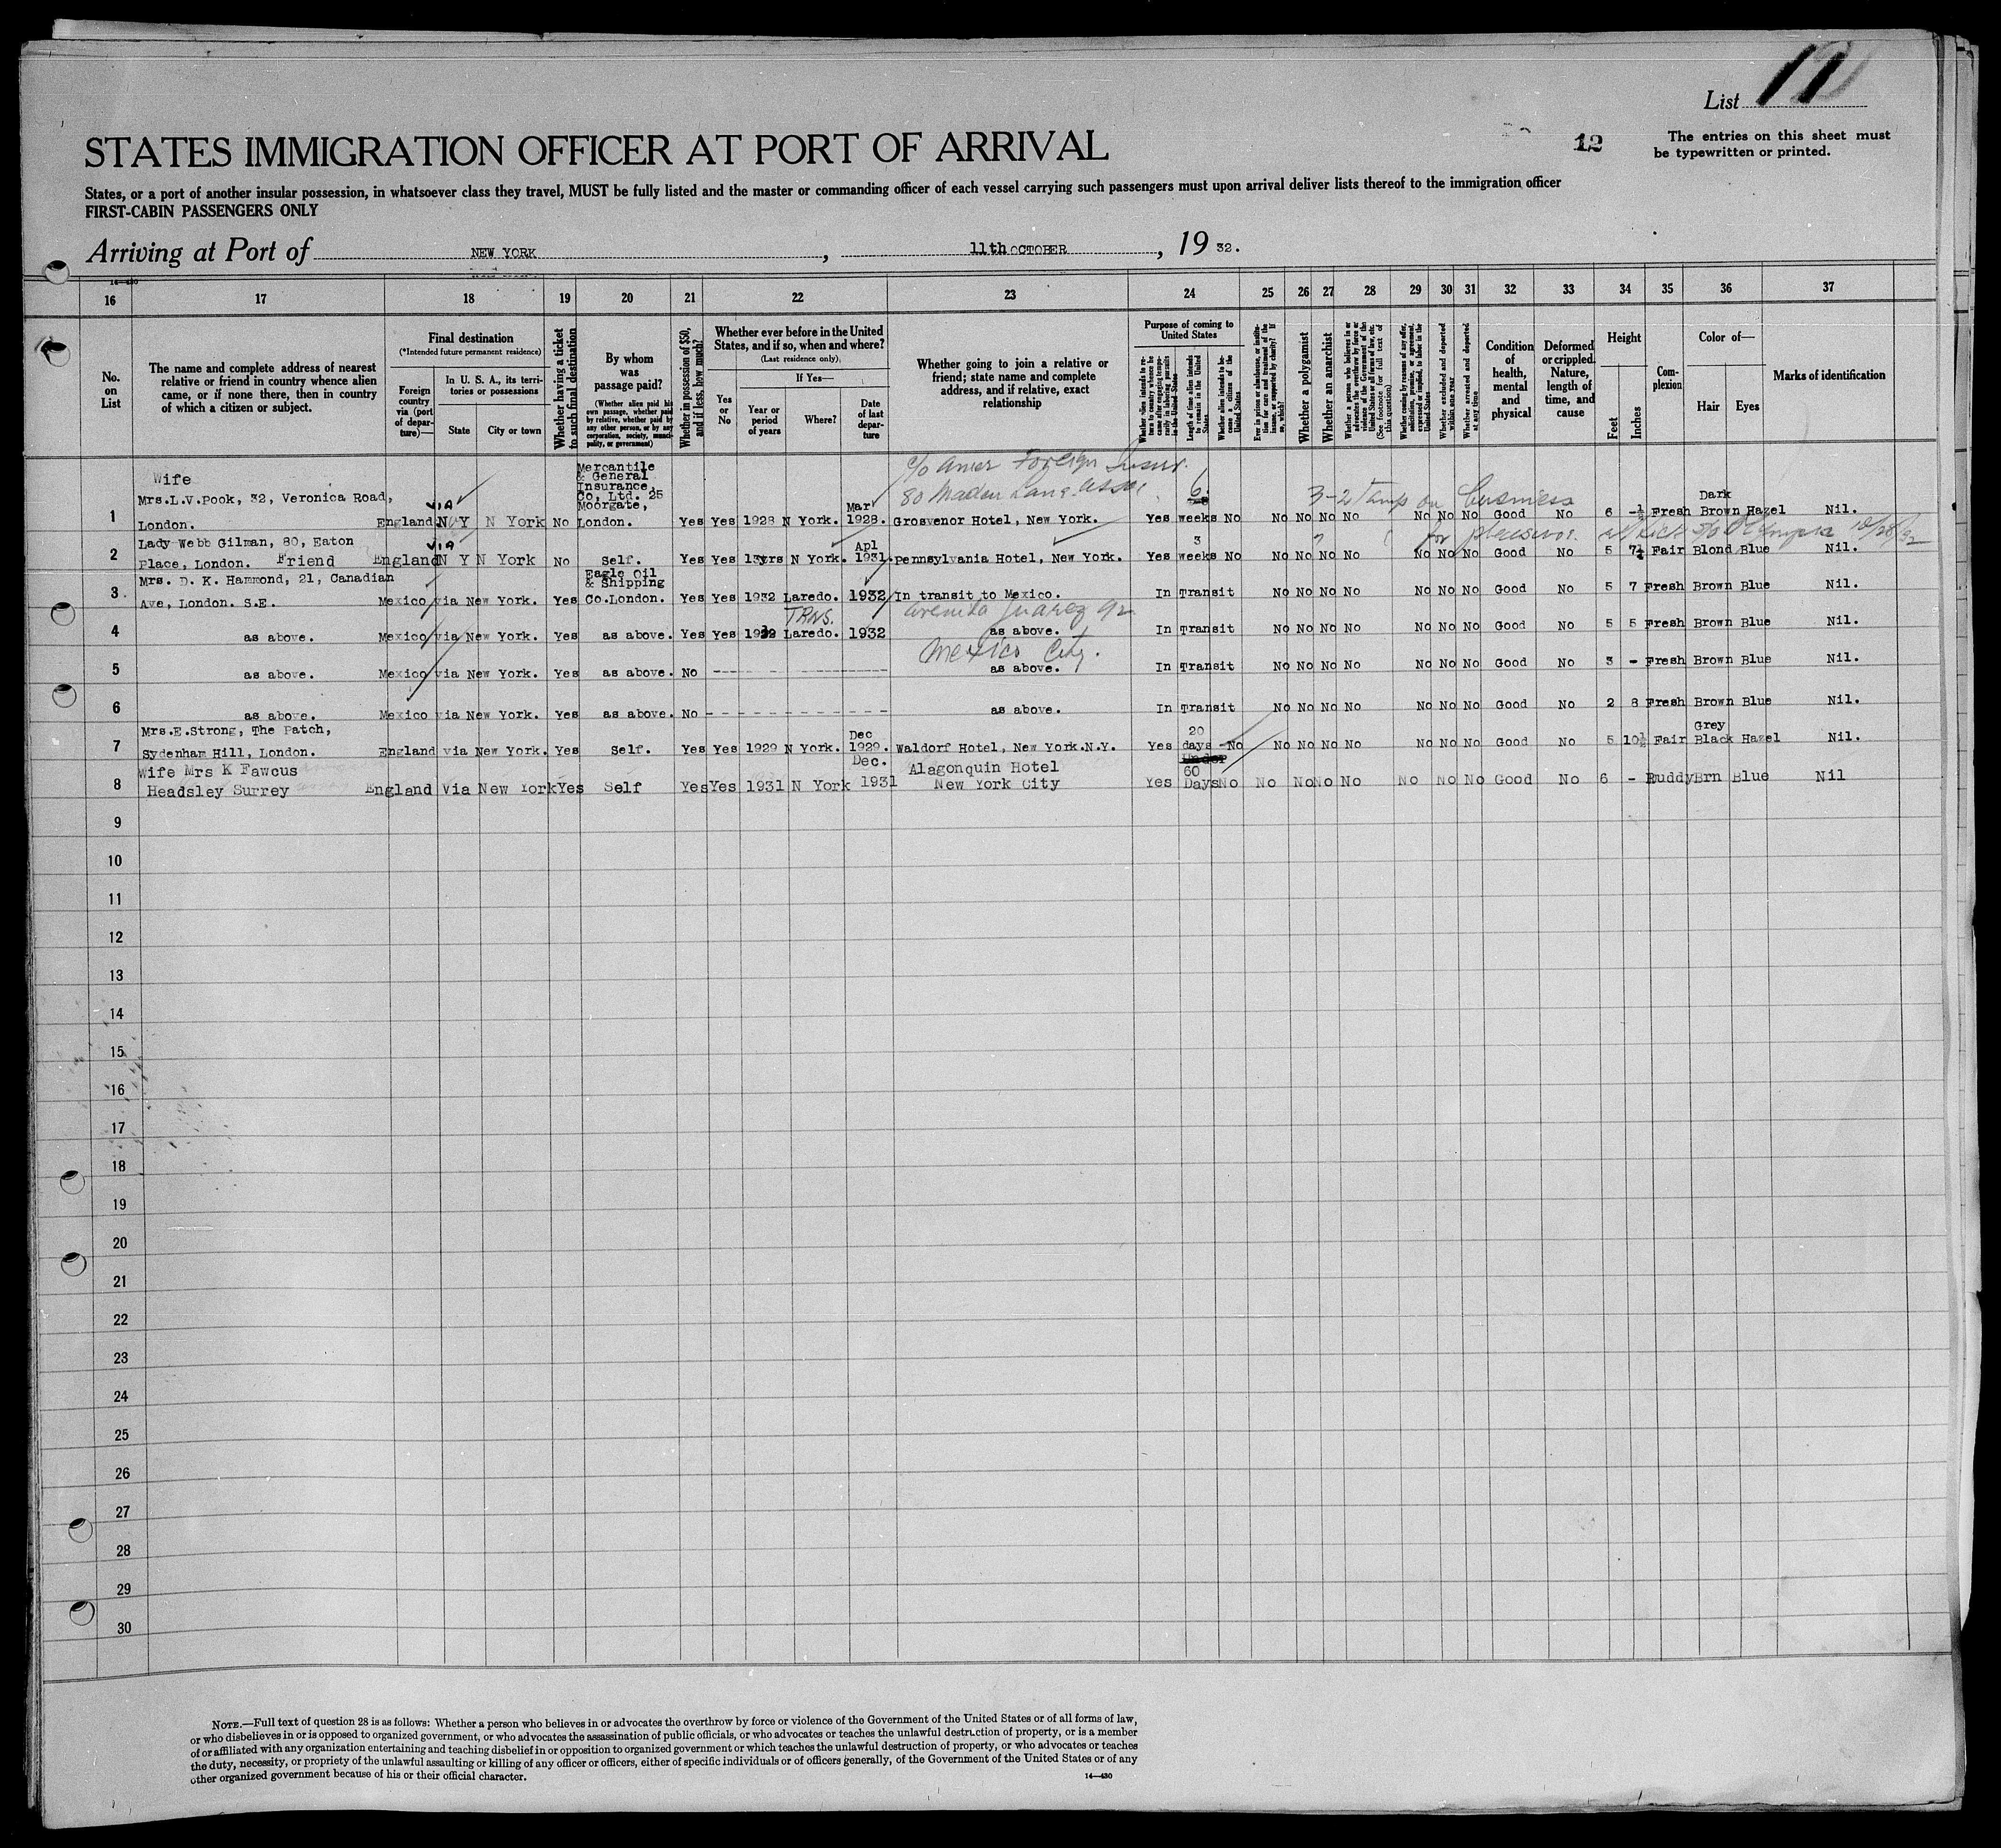 List
12
The entries on this sheet must
be typewritten or printed.
STATES IMMIGRATION OFFICER AT PORT OF ARRIVAL
States, or a port of another insular possession, in whatsoever class they travel, MUST be fully listed and the master or commanding officer of each vessel carrying such passengers must upon arrival deliver lists thereof to the immigration officer
FIRST-CABIN PASSENGERS ONLY
Arriving at Port of NEW YORK, 11th OCTOBER, 19 32.
16 17 18 19 20 21 22 23 24 25 26 27 28 29 30 31 32 33 34 35 36 37
No. on List
The name and complete address of nearest relative or friend in country whence alien came, or if none there, then in country of which a citizen or subject.
Final destination
(*Intended future permanent residence)
Foreign country via (port of departure)—
In U. S. A., its territories or possessions
State
City or town
Whether having a ticket to such final destination
By whom was passage paid?
(Whether alien paid his own passage, whether paid by relative, whether paid by any other person, or by any corporation, society, municipality, or government)
Whether in possession of $50, and if less, how much?
Whether ever before in the United States, and if so, when and where?
(Last residence only)
If Yes—
Yes or No
Year or period of years
Where?
Date of last departure
Whether going to join a relative or friend; state name and complete address, and if relative, exact relationship
Purpose of coming to United States
Whether alien intends to return to country whence he came after engaging temporarily in laboring pursuits in the United States
Length of time alien intends to remain in the United States
Whether alien intends to become a citizen of the United States
Ever in prison or almshouse, or institution for care and treatment of the insane, or supported by charity? If so, which?
Whether a polygamist
Whether an anarchist
Whether a person who believes in or advocates the overthrow by force or violence of the Government of the United States or all forms of law, etc. (See footnote for full text of this question)
Whether coming by reason of any offer, solicitation, promise, or agreement, expressed or implied, to labor in the United States
Whether excluded and deported within one year
Whether arrested and deported at any time
Condition of health, mental and physical
Deformed or crippled. Nature, length of time, and cause
Height
Feet
Inches
Complexion
Color of—
Hair
Eyes
Marks of identification
c/o Amer Foreign Insur.
80 Maiden Lane Assoc
3-2 Temp on business
1 Wife Mrs.L.V.Pook, 32, Veronica Road, London. England VIA N Y N York No Mercantile & General Insurance Co, Ltd. 25 Moorgate, London. Yes Yes 1928 N York. Mar 1928. Grosvenor Hotel, New York. Yes 6 weeks No No No No No No No No Good No 6 -½ Fresh Dark Brown Hazel Nil.
for pleasure. 10/28/32
2 Lady Webb Gilman, 80, Eaton Place, London. Friend England VIA N Y N York No Self. Yes Yes 13yrs N York. Apl 1931. Pennsylvania Hotel, New York. Yes 3 weeks No No No No No No No No Good No 5 7½ Fair Blond Blue Nil.
3 Mrs. D. K. Hammond, 21, Canadian Ave, London. S.E. Mexico via New York. Yes Eagle Oil & Shipping Co.London. Yes Yes 1932 Laredo. 1932 In transit to Mexico. In Transit No No No No No No No Good No 5 7 Fresh Brown Blue Nil.
TRNS. Avenida Juarez 92
4 as above. Mexico via New York. Yes as above. Yes Yes 1932 Laredo. 1932 as above. In Transit No No No No No No No Good No 5 5 Fresh Brown Blue Nil.
Mexico City.
5 as above. Mexico via New York. Yes as above. No as above. In Transit No No No No No No No Good No 3 - Fresh Brown Blue Nil.
6 as above. Mexico via New York. Yes as above. No as above. In Transit No No No No No No No Good No 2 8 Fresh Brown Blue Nil.
7 Mrs.E.Strong, The Patch, Sydenham Hill, London. England via New York. Yes Self. Yes Yes 1929 N York. Dec 1929. Waldorf Hotel, New York.N.Y. Yes 20 days -No No No No No No No No Good No 5 10½ Fair Grey Black Hazel Nil.
8 Wife Mrs K Fawcus Headsley Surrey England Via New York Yes Self Yes Yes 1931 N York Dec. 1931 Alagonquin Hotel New York City Yes Under 60 Days No No No No No No No No Good No 6 - Ruddy Brn Blue Nil
9
10
11
12
13
14
15
16
17
18
19
20
21
22
23
24
25
26
27
28
29
30
NOTE.—Full text of question 28 is as follows: Whether a person who believes in or advocates the overthrow by force or violence of the Government of the United States or of all forms of law,
or who disbelieves in or is opposed to organized government, or who advocates the assassination of public officials, or who advocates or teaches the unlawful destruction of property, or is a member
of or affiliated with any organization entertaining and teaching disbelief in or opposition to organized government or which teaches the unlawful destruction of property, or who advocates or teaches
the duty, necessity, or propriety of the unlawful assaulting or killing of any officer or officers, either of specific individuals or of officers generally, of the Government of the United States or of any
other organized government because of his or their official character.
14—430